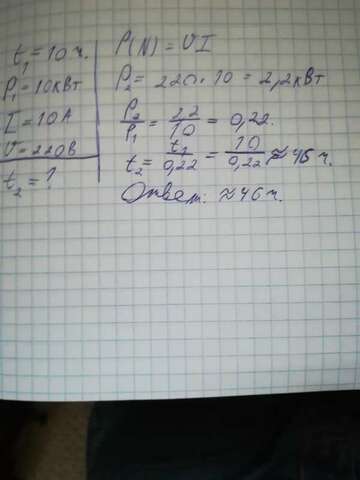 t₁ = 10 ч.
P₁ = 10кВт
I = 10 А
U = 220В
t₂ = ?
P(N) = UI
P₂ = 220·10 = 2,2кВт
P₂/P₁ = 2,2/10 = 0,22.
t₂ = t₁/0,22 = 10/0,22 ≈ 46 ч.
Ответ: ≈ 46 ч.